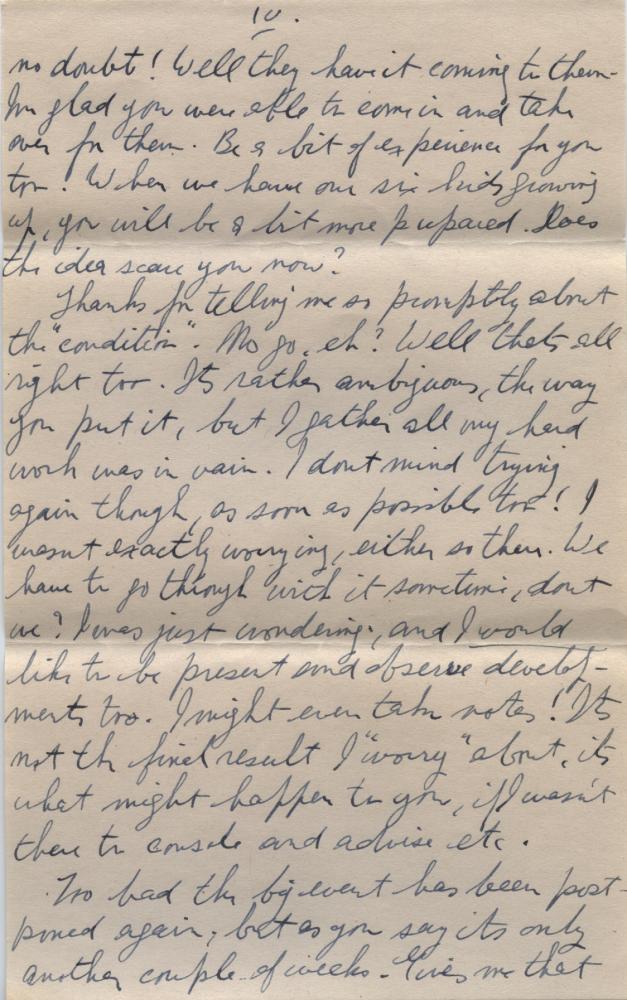 IV.
no doubt! Well they have it coming to them-
Im glad you were able to come in and take
over for them. Be a bit of experience for you
too! When we have our six kids growing
up, you will be a bit more prepared. Does
the idea scare you now?
Thanks for telling me so promptly about
the "condition". No go, eh? Well thats all
right too. Its rather ambiguous, the way
you put it, but I gather all my hard
work was in vain. I dont mind trying
again though, as soon as possible too! I
wasnt exactly worrying, either so there. We
have to go through with it sometime, dont
we? I was just wondering, and I would
like to be present and observe develop-
ments too. I might even take notes! Its
not the final result I "worry" about, its
what might happen to you, if I wasn't
there to console and advise etc.
Too bad the big event has been post-
poned again, but as you say its only
another couple of weeks. Gives me that